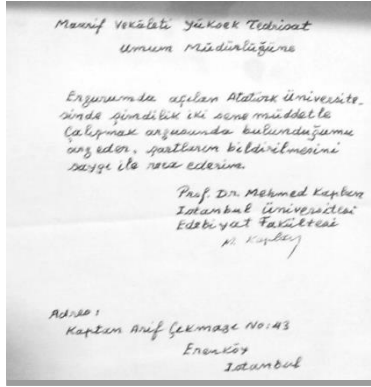 Maarif Vekâleti Yüksek Tedrisat
Umum Müdürlüğüne
Erzurumda açılan Atatürk Üniversite-
sinde şimdilik iki sene müddetle
Çalışmak arzusunda bulunduğumu
arz eder, şartların bildirilmesini
saygı ile rica ederim.
Prof. Dr. Mehmed Kaplan
Istanbul Üniversitesi
Edebiyat Fakültesi
M. Kaplan
Adres:
Kaptan Arif Çıkmazı No: 43
Erenköy
Istanbul